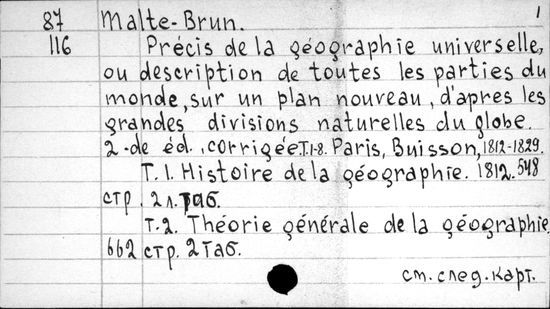 87 Malte-Brun. 1
116 Précis de la géographie universelle,
ou description de toutes les parties du
monde, sur un plan nouveau, d'apres les
grandes divisions naturelles du globe.
2-de éd., corrigée. T.1-8. Paris, Buisson, 1812-1829.
T. 1. Histoire de la géographie. 1812. 548
стр. 2 л. таб.
T. 2. Théorie générale de la géographie
662 стр. 2 таб.
см. след. карт.